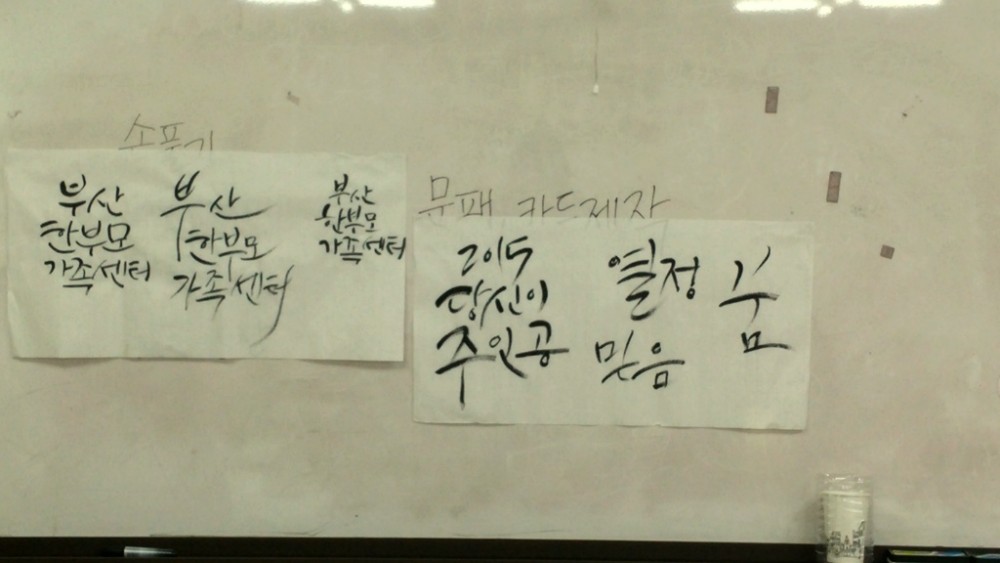 소품기
부산
한부모
가족센터
부산
한부모
가족센터
부산
한부모
가족센터
문패 카드제작
2015
당신이
주인공
열정
믿음